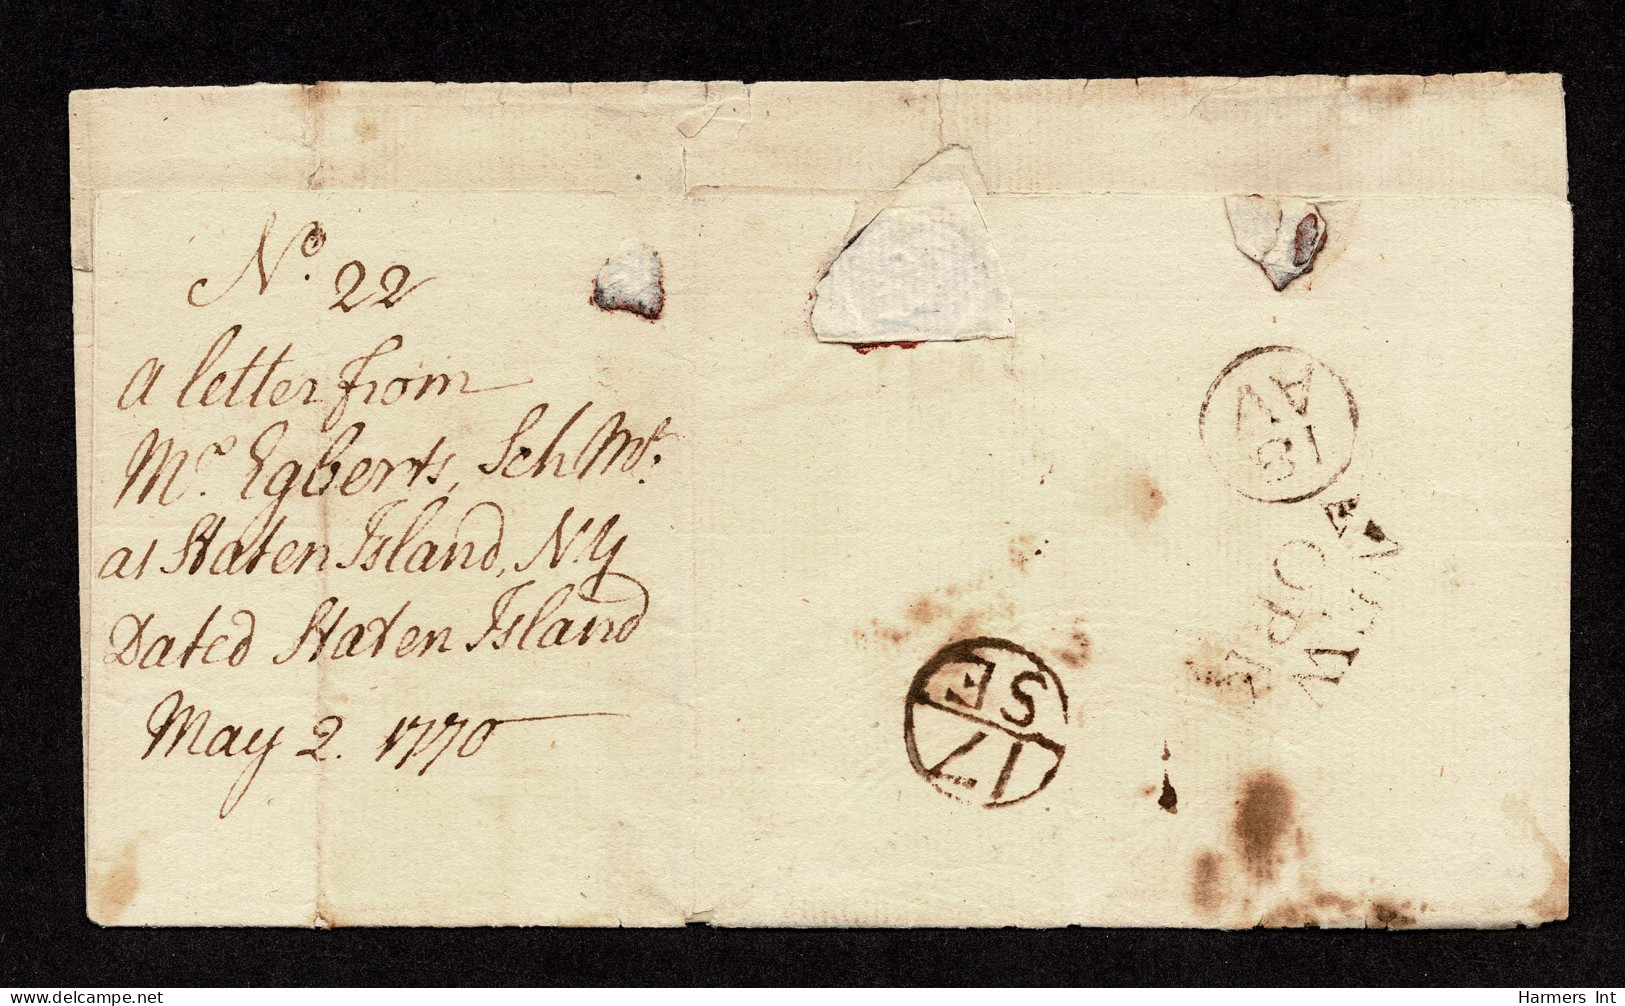 No. 22
A letter from
Mr. Egberts, Sch Mr.
at Staten Island, N.Y
Dated Staten Island
May 2. 1770
18
AV
NEW
YORK
SE
17
Harmers Int